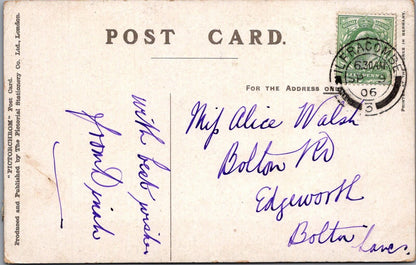 POST CARD.
FOR THE ADDRESS ON
"PICTORCHROM" Post Card.
Produced and Published by The Pictorial Stationery Co. Ltd., London.
IN GERMANY.
ILFRACOMBE
6.30AM
SP 9
06
5
with best wishes
from Dinah
Miss Alice Walsh
Bolton Rd
Edgeworth
Bolton
Lancs.